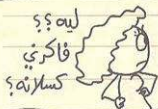 ليه؟؟
فاكرني
كسلانه؟